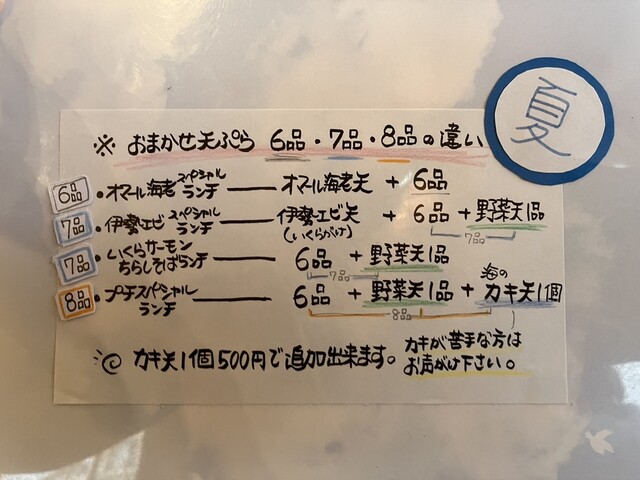 夏
※ おまかせ天ぷら 6品・7品・8品の違い
6品 ・オマール海老スペシャルランチ ── オマール海老天 + 6品
7品 ・伊勢エビスペシャルランチ ── 伊勢エビ天(いくらがけ) + 6品 + 野菜天1品
7品
7品 ・いくらサーモンちらしそばランチ ── 6品 + 野菜天1品
7品
8品 ・プチスペシャルランチ ── 6品 + 野菜天1品 + 海のカキ天1個
8品
カキ天1個500円で追加出来ます。
カキが苦手な方は
お声がけ下さい。